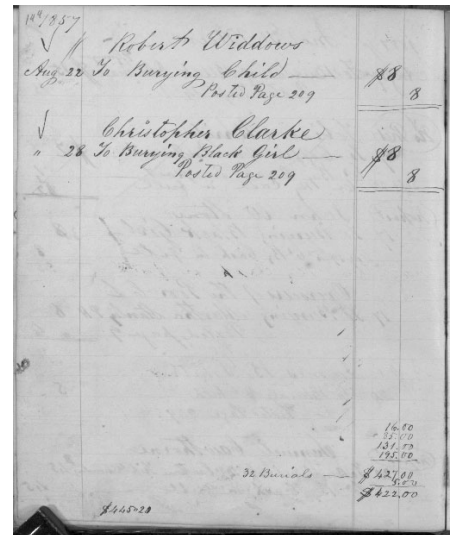 1857
Robert Widdows
Aug 22 To Burying Child $8
Posted Page 209 8
Christopher Clarke
" 28 To Burying Black Girl $8
Posted Page 209 8
16.00
35.00
131.00
195.00
32 Burials $427.00
5.00
$422.00
$445.20